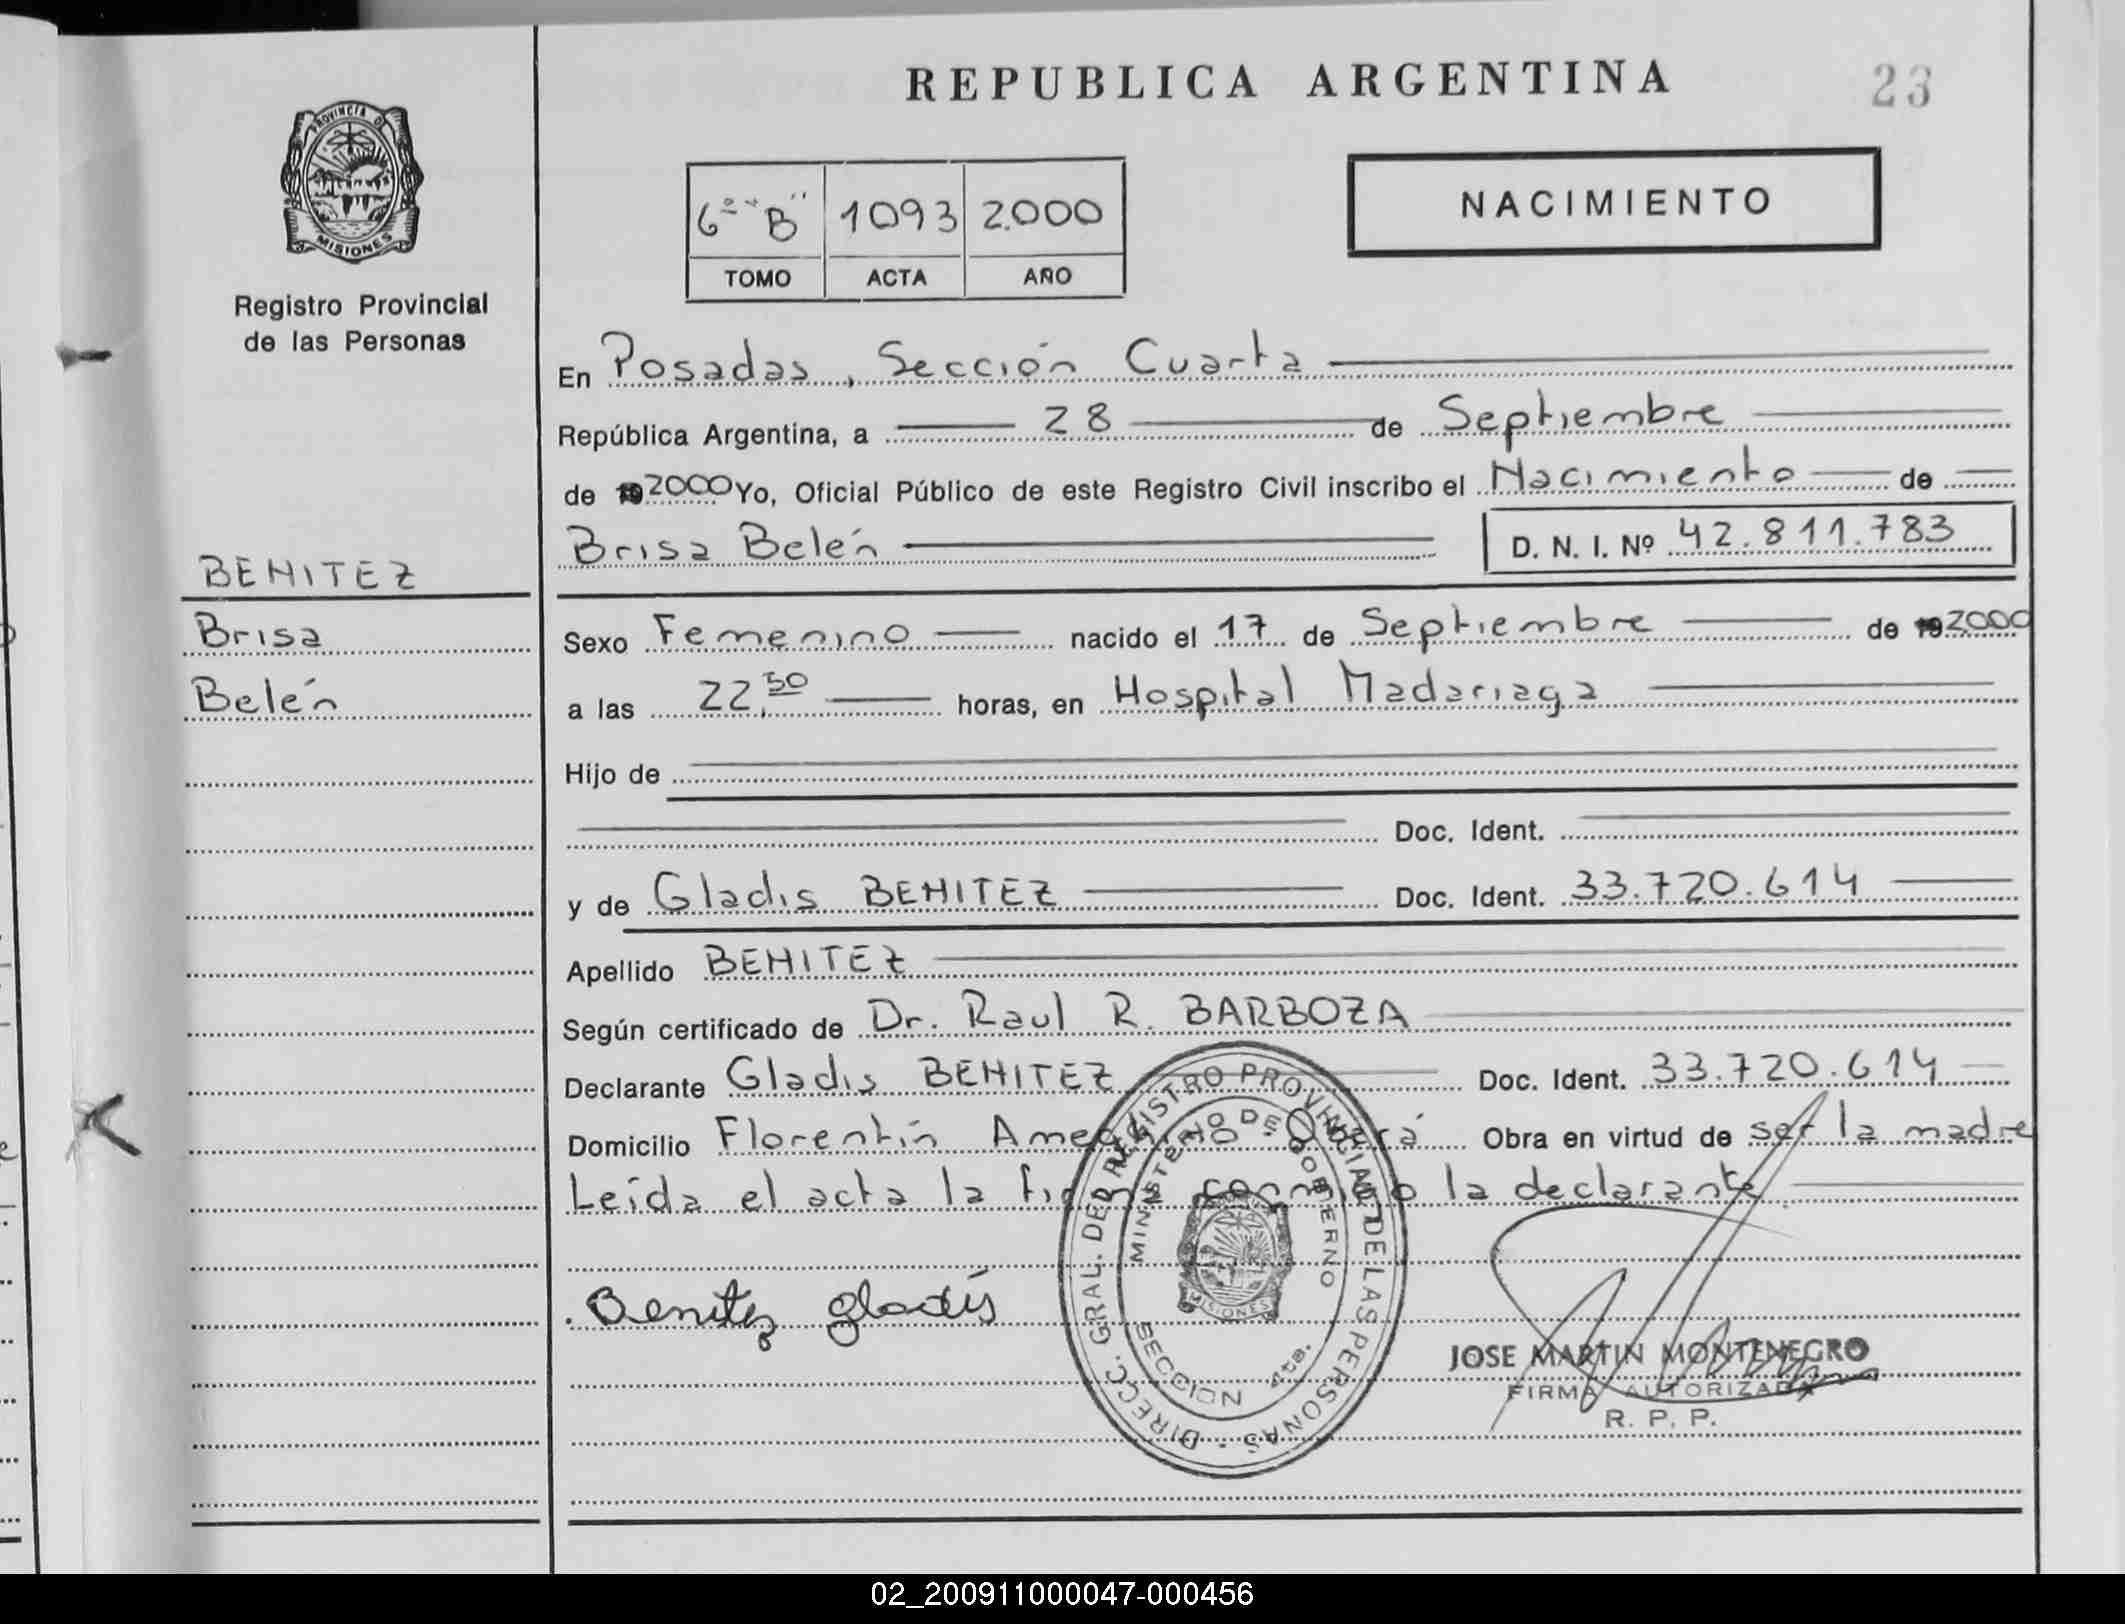 REPUBLICA ARGENTINA
23
PROVINCIA DE
MISIONES
Registro Provincial
de las Personas
6º "B" 1093 2.000
TOMO ACTA AÑO
NACIMIENTO
En Posadas, Sección Cuarta
República Argentina, a 28 de Septiembre
de 192000 Yo, Oficial Público de este Registro Civil inscribo el Nacimiento de
Brisa Belén D. N. I. Nº 42.811.783
BENITEZ
Brisa
Belén
Sexo Femenino nacido el 17 de Septiembre de 192000
a las 22,50 horas, en Hospital Madariaga
Hijo de
Doc. Ident.
y de Gladis BENITEZ Doc. Ident. 33.720.614
Apellido BENITEZ
Según certificado de Dr. Raul R. BARBOZA
Declarante Gladis BENITEZ Doc. Ident. 33.720.614
Domicilio Florentín Ameghino - Oberá Obra en virtud de ser la madre
Leída el acta la firma conmigo la declarante
Benitez gladís
DIRECC. GRAL. DEL REGISTRO PROVINCIAL DE LAS PERSONAS
MINISTERIO DE GOBIERNO
MISIONES
SECCION 4ta.
JOSE MARTIN MONTENEGRO
FIRMA AUTORIZADA
R. P. P.
02_200911000047-000456